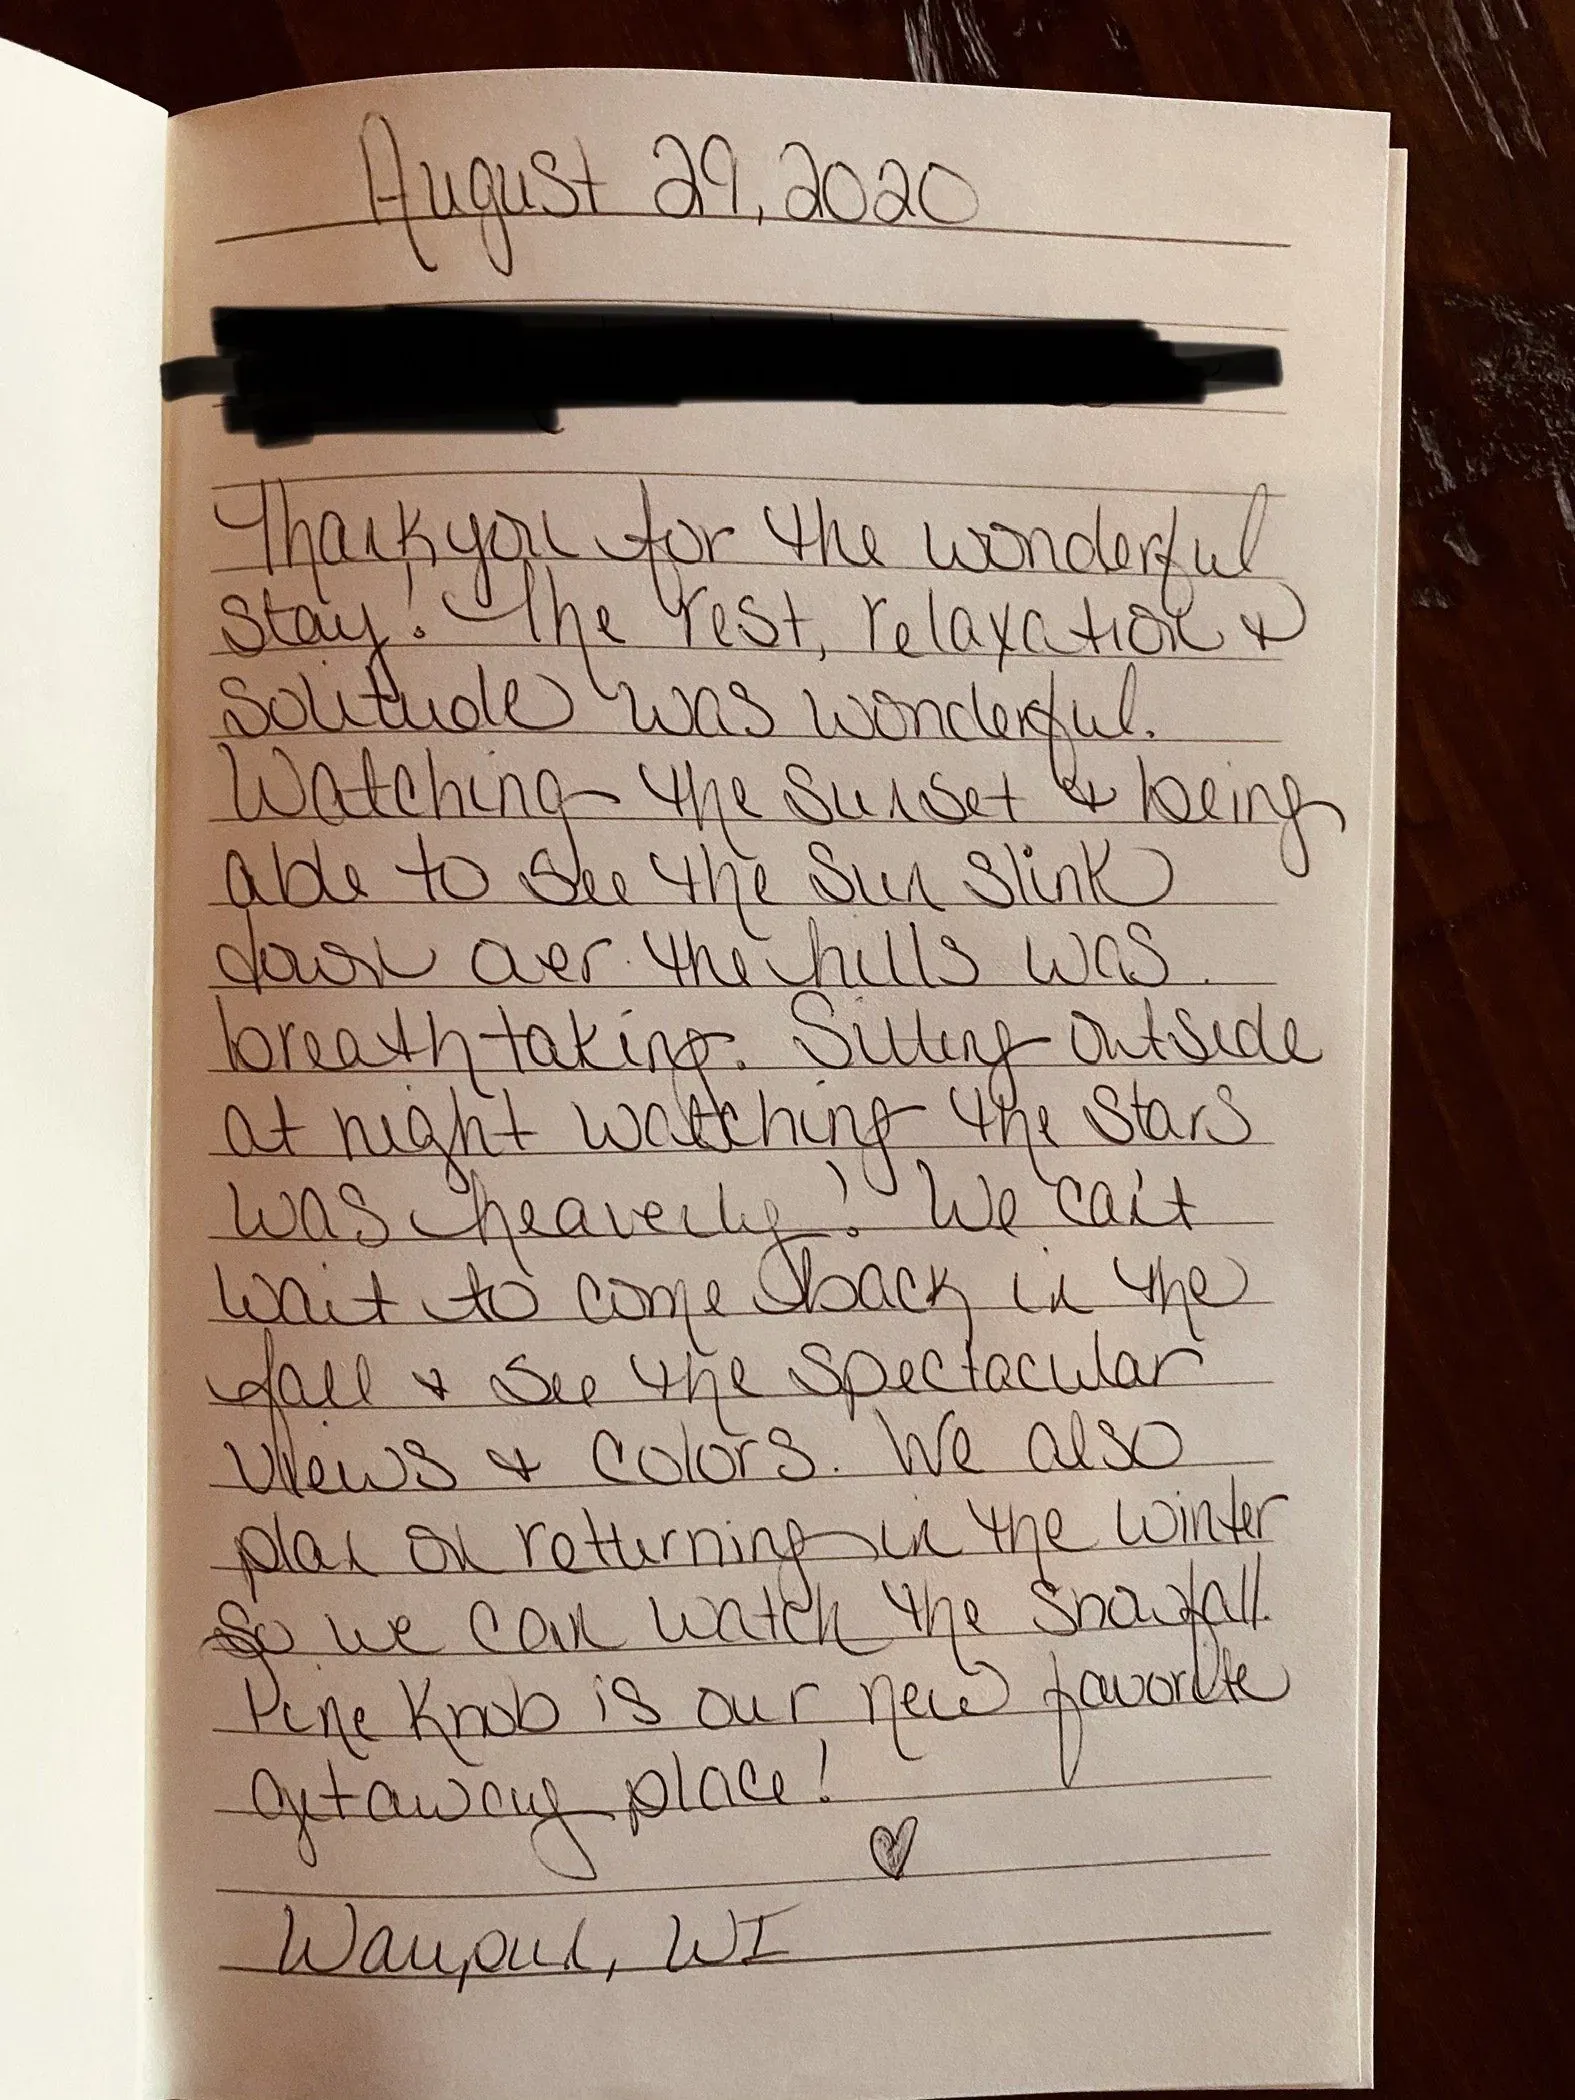 August 29, 2020
Thank you for the wonderful
stay! The rest, relaxation &
solitude was wonderful.
Watching the sunset & being
able to see the sun slink
down over the hills was
breathtaking. Sitting outside
at night watching the stars
was heavenly! We can't
wait to come back in the
fall & see the spectacular
views & colors. We also
plan on returning in the winter
so we can watch the snowfall.
Pine Knob is our new favorite
getaway place!
Waupun, WI